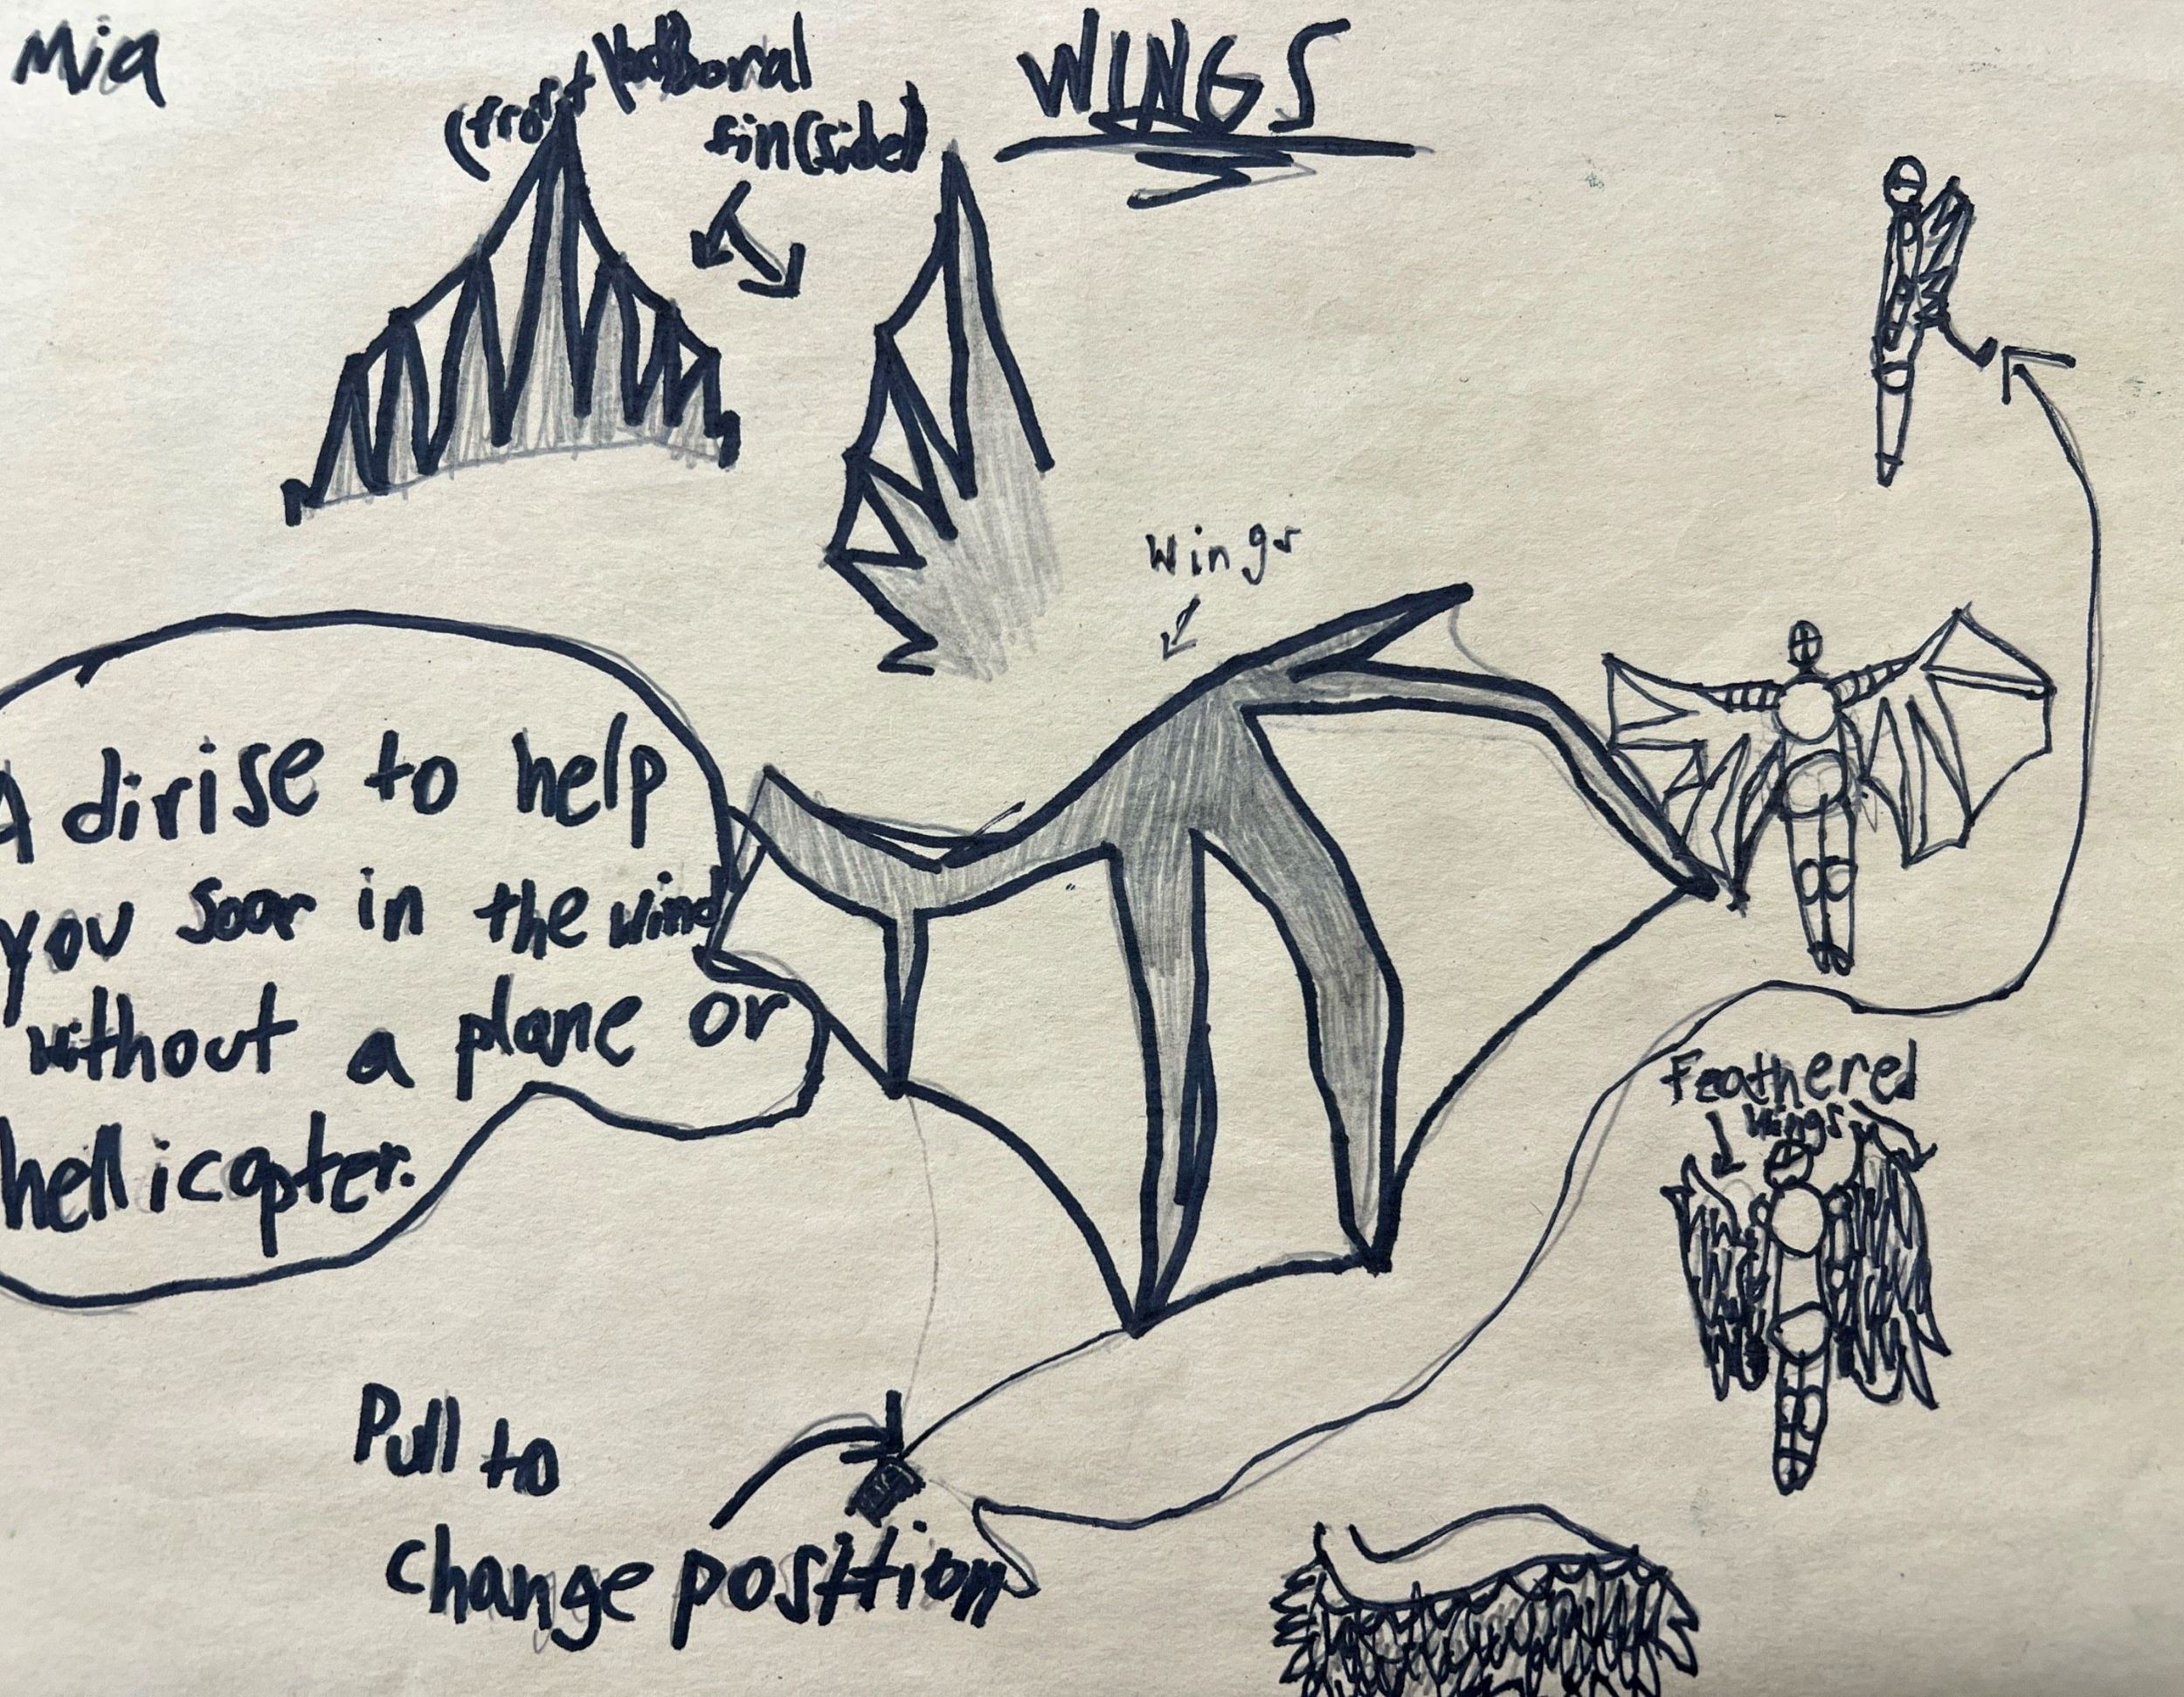 Mia
WINGS
(front
fin(side)
wings
A dirise to help
you soar in the wind
without a plane or
hellicopter.
Feathered
wings
Pull to
change position